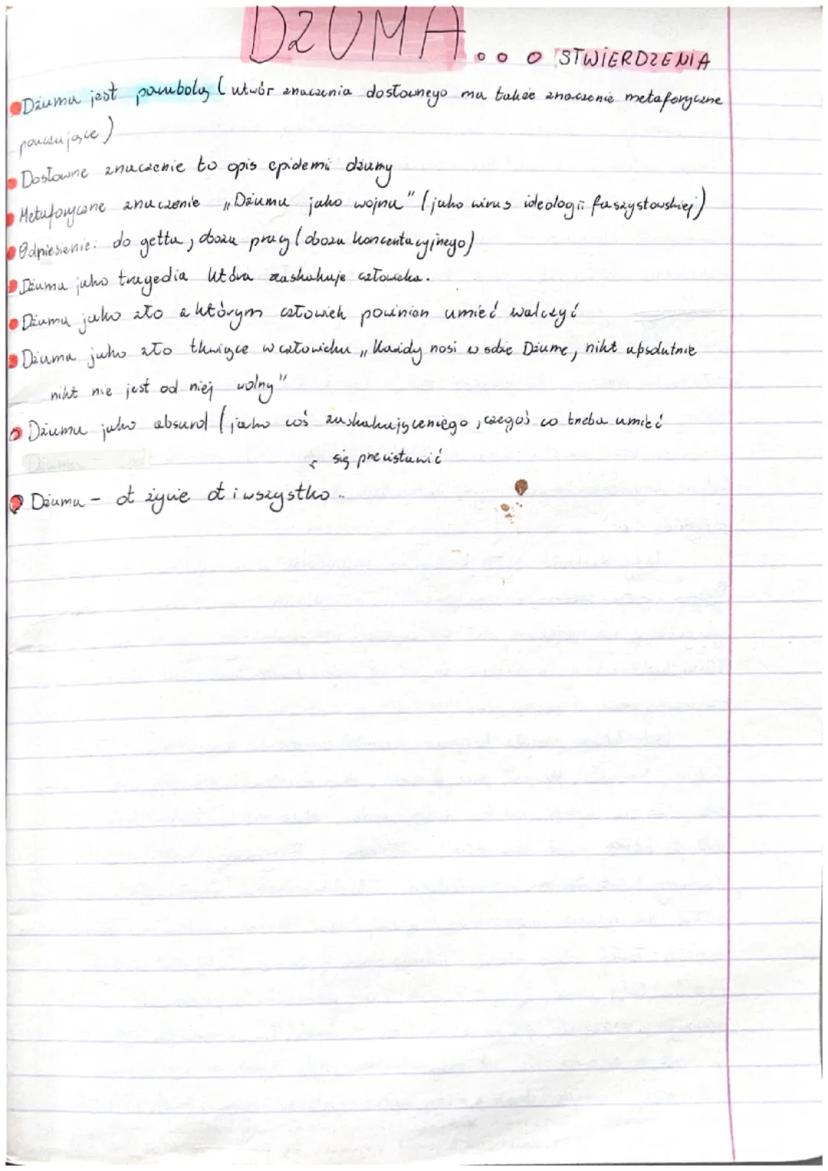 DŻUMA... o STWIERDZENIA
Dżuma jest parabolą (utwór znaczenia dosłownego ma także znaczenie metaforyczne
pouczające)
Dosłowne znaczenie to opis epidemi dżumy
Metaforyczne znaczenie „Dżuma jako wojna" (jako wirus ideologii faszystowskiej)
Odniesienie: do getta, obozu pracy (obozu koncentacyjnego)
Dżuma jako tragedia która zaskakuje człowieka.
Dżuma jako zło z którym człowiek powinien umieć walczyć
Dżuma jako zło tkwiące w człowieku „Każdy nosi w sobie Dżumę, nikt absolutnie
nikt nie jest od niej wolny"
Dżuma jako absurd (jako coś zaskakującego, czegoś co trzeba umieć
się przecistawić
Dżuma - ot życie ot i wszystko..